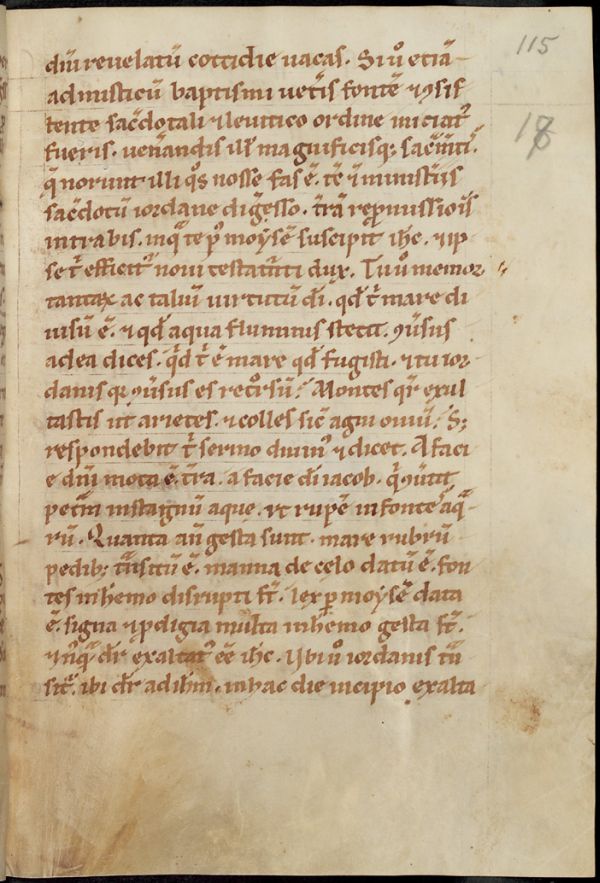 115
18
diū revelatū cottidie vacas. Si ů etiā
ad misticū baptismi veñis fontē ⁊ ꝯsis
tente sac̄dotali ⁊ levitico ordine iniciat᾽
fueris. venandis ill᾽ magnificisq; sac̄mtis.
q̄ norunt illi q̊s nosse fas ē. tc̄ ⁊ ministris
sac̄dotū iordane digesso. t̄rā repmissiōis
intrabis. in q̄ te p᾽ moysē suscipit ihc. ⁊ ip
se t̄ efficit᾽ novi testam̄ti dux. Tu ů memor
tantaꝝ ac taliū virtutū dī. qd̄ t̄ mare di
visū ē. ⁊ qd̄ aqua fluminis stetit. ꝯversus
ad ea dices. Qd̄ t̄ ē mare qd̄ fugisti. ⁊ tu ior
danis qr̄ ꝯversus es retrorsū? Montes qr̄ exul
tastis ut arietes. ⁊ colles sic̄ agni oviū? S;
respondebit t̄ sermo divin᾽ ⁊ dicet. A faci
e dn̄i mota ē t̄ra. a facie dī iacob. q̄ ꝯvtit
petrā in stagnū aque. ⁊ rupē in fontē aq̄
rū. Quanta an̄ gesta sunt. mare rubrū
pedib; tn̄sitū ē. manna de celo datū ē. fon
tes in h̄emo disrupti st̄. lex p̄ moysē data
ē. signa ⁊ ꝓdigia multa in h̄emo gesta st̄.
⁊ nūq̄ dr̄ exaltat᾽ eē ihc. Ubi ů iordanis tn̄
sit᾽. ibi dr̄ ad ihm̄. in hac die incipio exalta